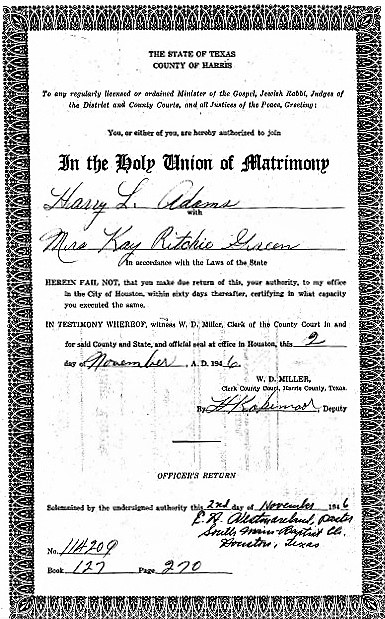 THE STATE OF TEXAS
COUNTY OF HARRIS
To any regularly licensed or ordained Minister of the Gospel, Jewish Rabbi, Judges of
the District and County Courts, and all Justices of the Peace, Greeting:
You, or either of you, are hereby authorized to join
In the Holy Union of Matrimony
Harry L. Adams
with
Mrs Kay Ritchie Green
In accordance with the Laws of the State
HEREIN FAIL NOT, that you make due return of this, your authority, to my office
in the City of Houston, within sixty days thereafter, certifying in what capacity
you executed the same.
IN TESTIMONY WHEREOF, witness W. D. Miller, Clerk of the County Court in and
for said County and State, and official seal at office in Houston, this 2
day of November, A. D. 1946.
W. D. MILLER,
Clerk County Court, Harris County, Texas.
By H, Deputy
OFFICER'S RETURN
Solemnized by the undersigned authority this 2nd day of November 1946
E. D. Westmoreland, Pastor
South Main Baptist Ch.
Houston, Texas
No. 114209
Book 127 Page 270